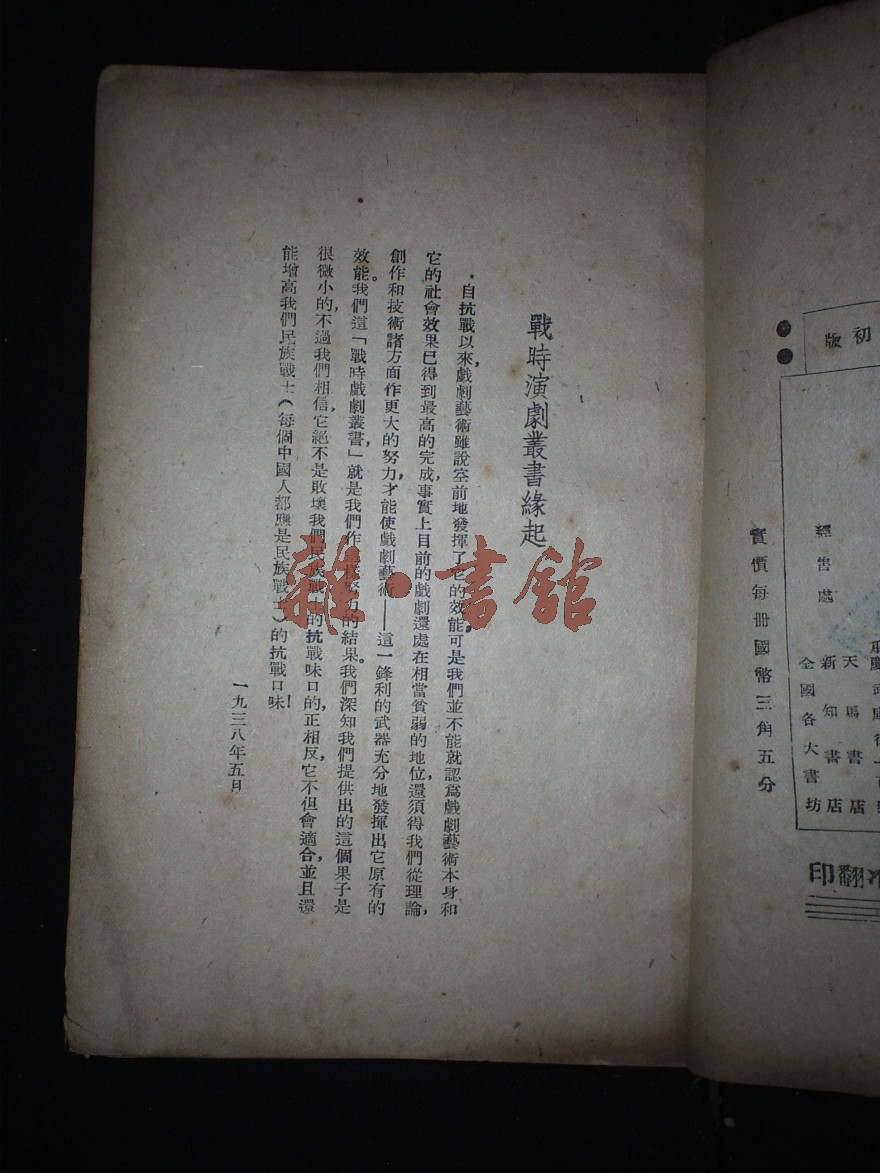 戰時演劇叢書緣起
自抗戰以來,戲劇藝術雖說空前地發揮了它的效能可是我們並不能就認爲戲劇藝術本身和
它的社會效果已得到最高的完成,事實上目前的戲劇還處在相當貧弱的地位,還須得我們從理論,
創作和技術諸方面作更大的努力,才能使戲劇藝術——這一鋒利的武器充分地發揮出它原有的
效能。我們這「戰時戲劇叢書,」就是我們作這樣努力的結果。我們深知我們提供出的這個果子是
很微小的,不過我們相信,它絕不是敗壞我們民族戰士的抗戰味口的,正相反,它不但會適合,並且還
能增高我們民族戰士(每個中國人都應是民族戰士)的抗戰口味!
一九三八年五月
雜·書館
初版
經售處
天馬書店
新知書店
全國各大書坊
實價每冊國幣三角五分
印翻